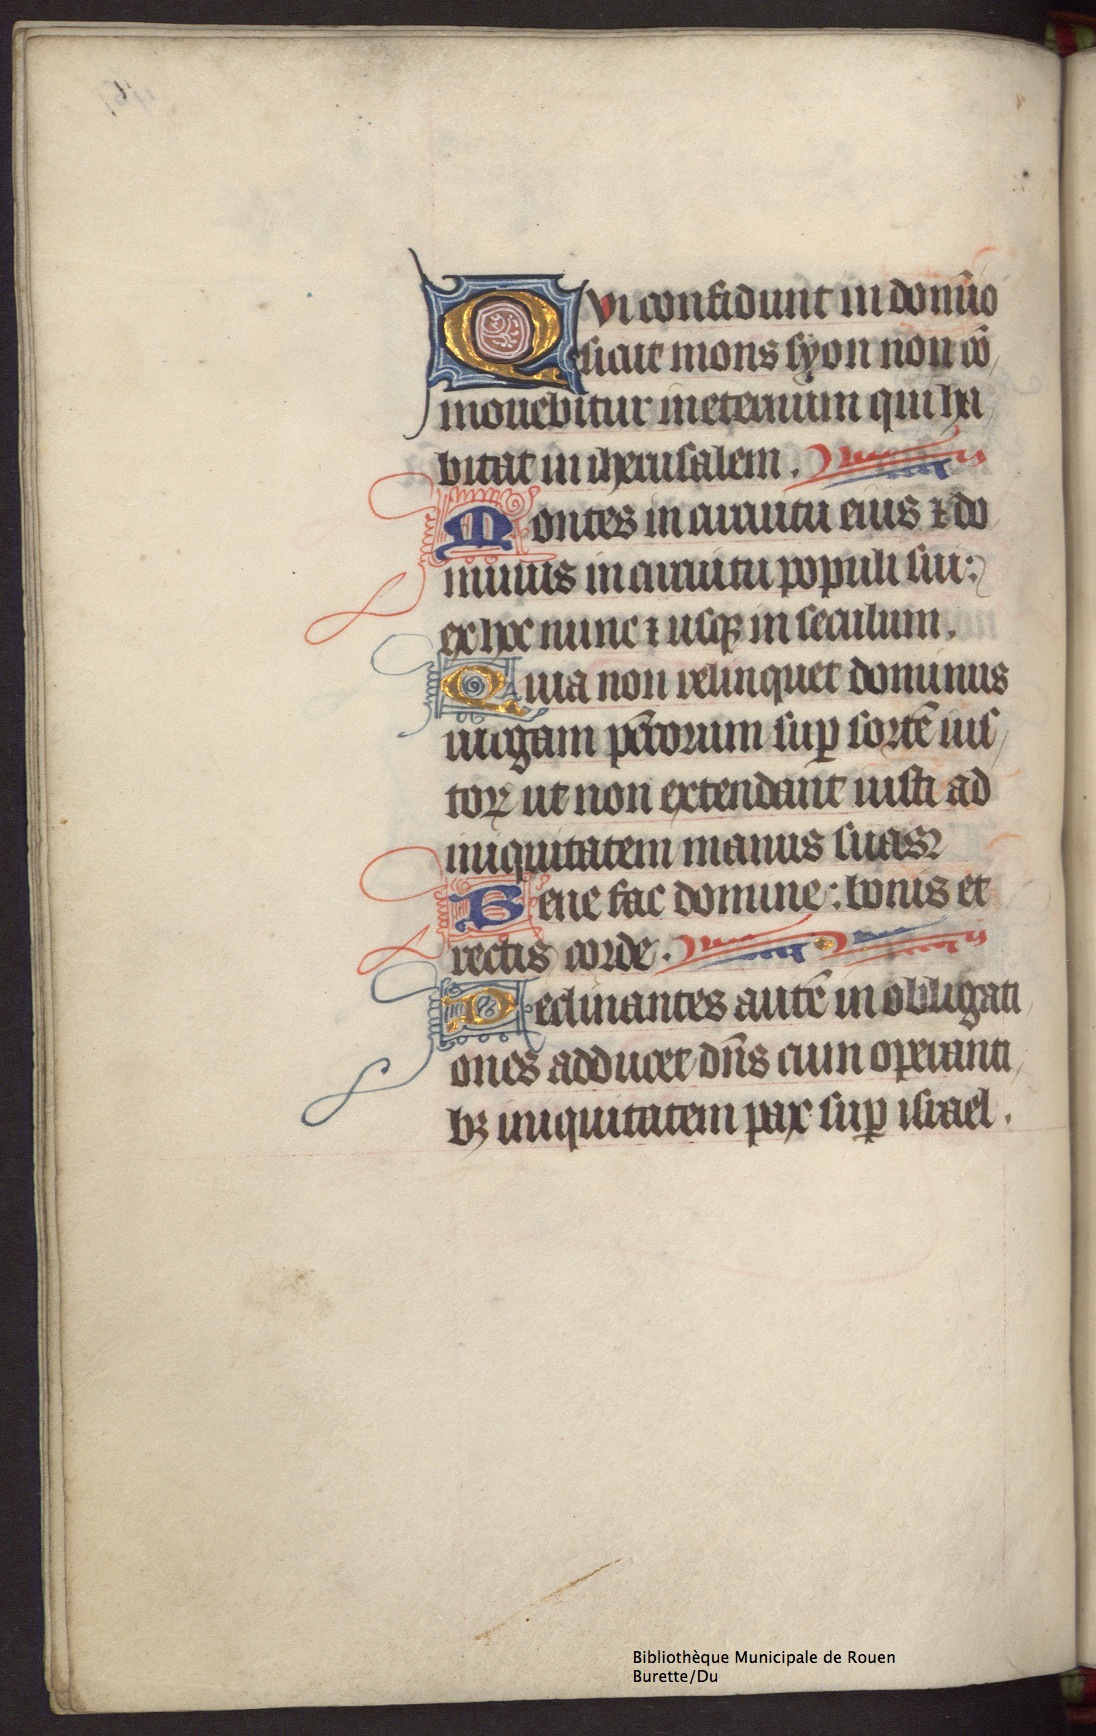 Qvi confidunt in domīo
sicut mons syon non cō
mouebitur in eternum qui ha
bitat in iherusalem.
Montes in circuitu eius ⁊ do
minus in circuitu populi sui:
ex hoc nunc ⁊ usqꝫ in seculum.
Quia non relinquet dominus
uirgam pc̄corum suꝑ sortē ius
toꝝ ut non extendant iusti ad
iniquitatem manus suas
Bene fac domine: bonis et
rectis corde.
Declinantes autē in obligati
ones adducet dn̄s cum operanti
bꝫ iniquitatem pax suꝑ israel.
Bibliothèque Municipale de Rouen
Burette/Du